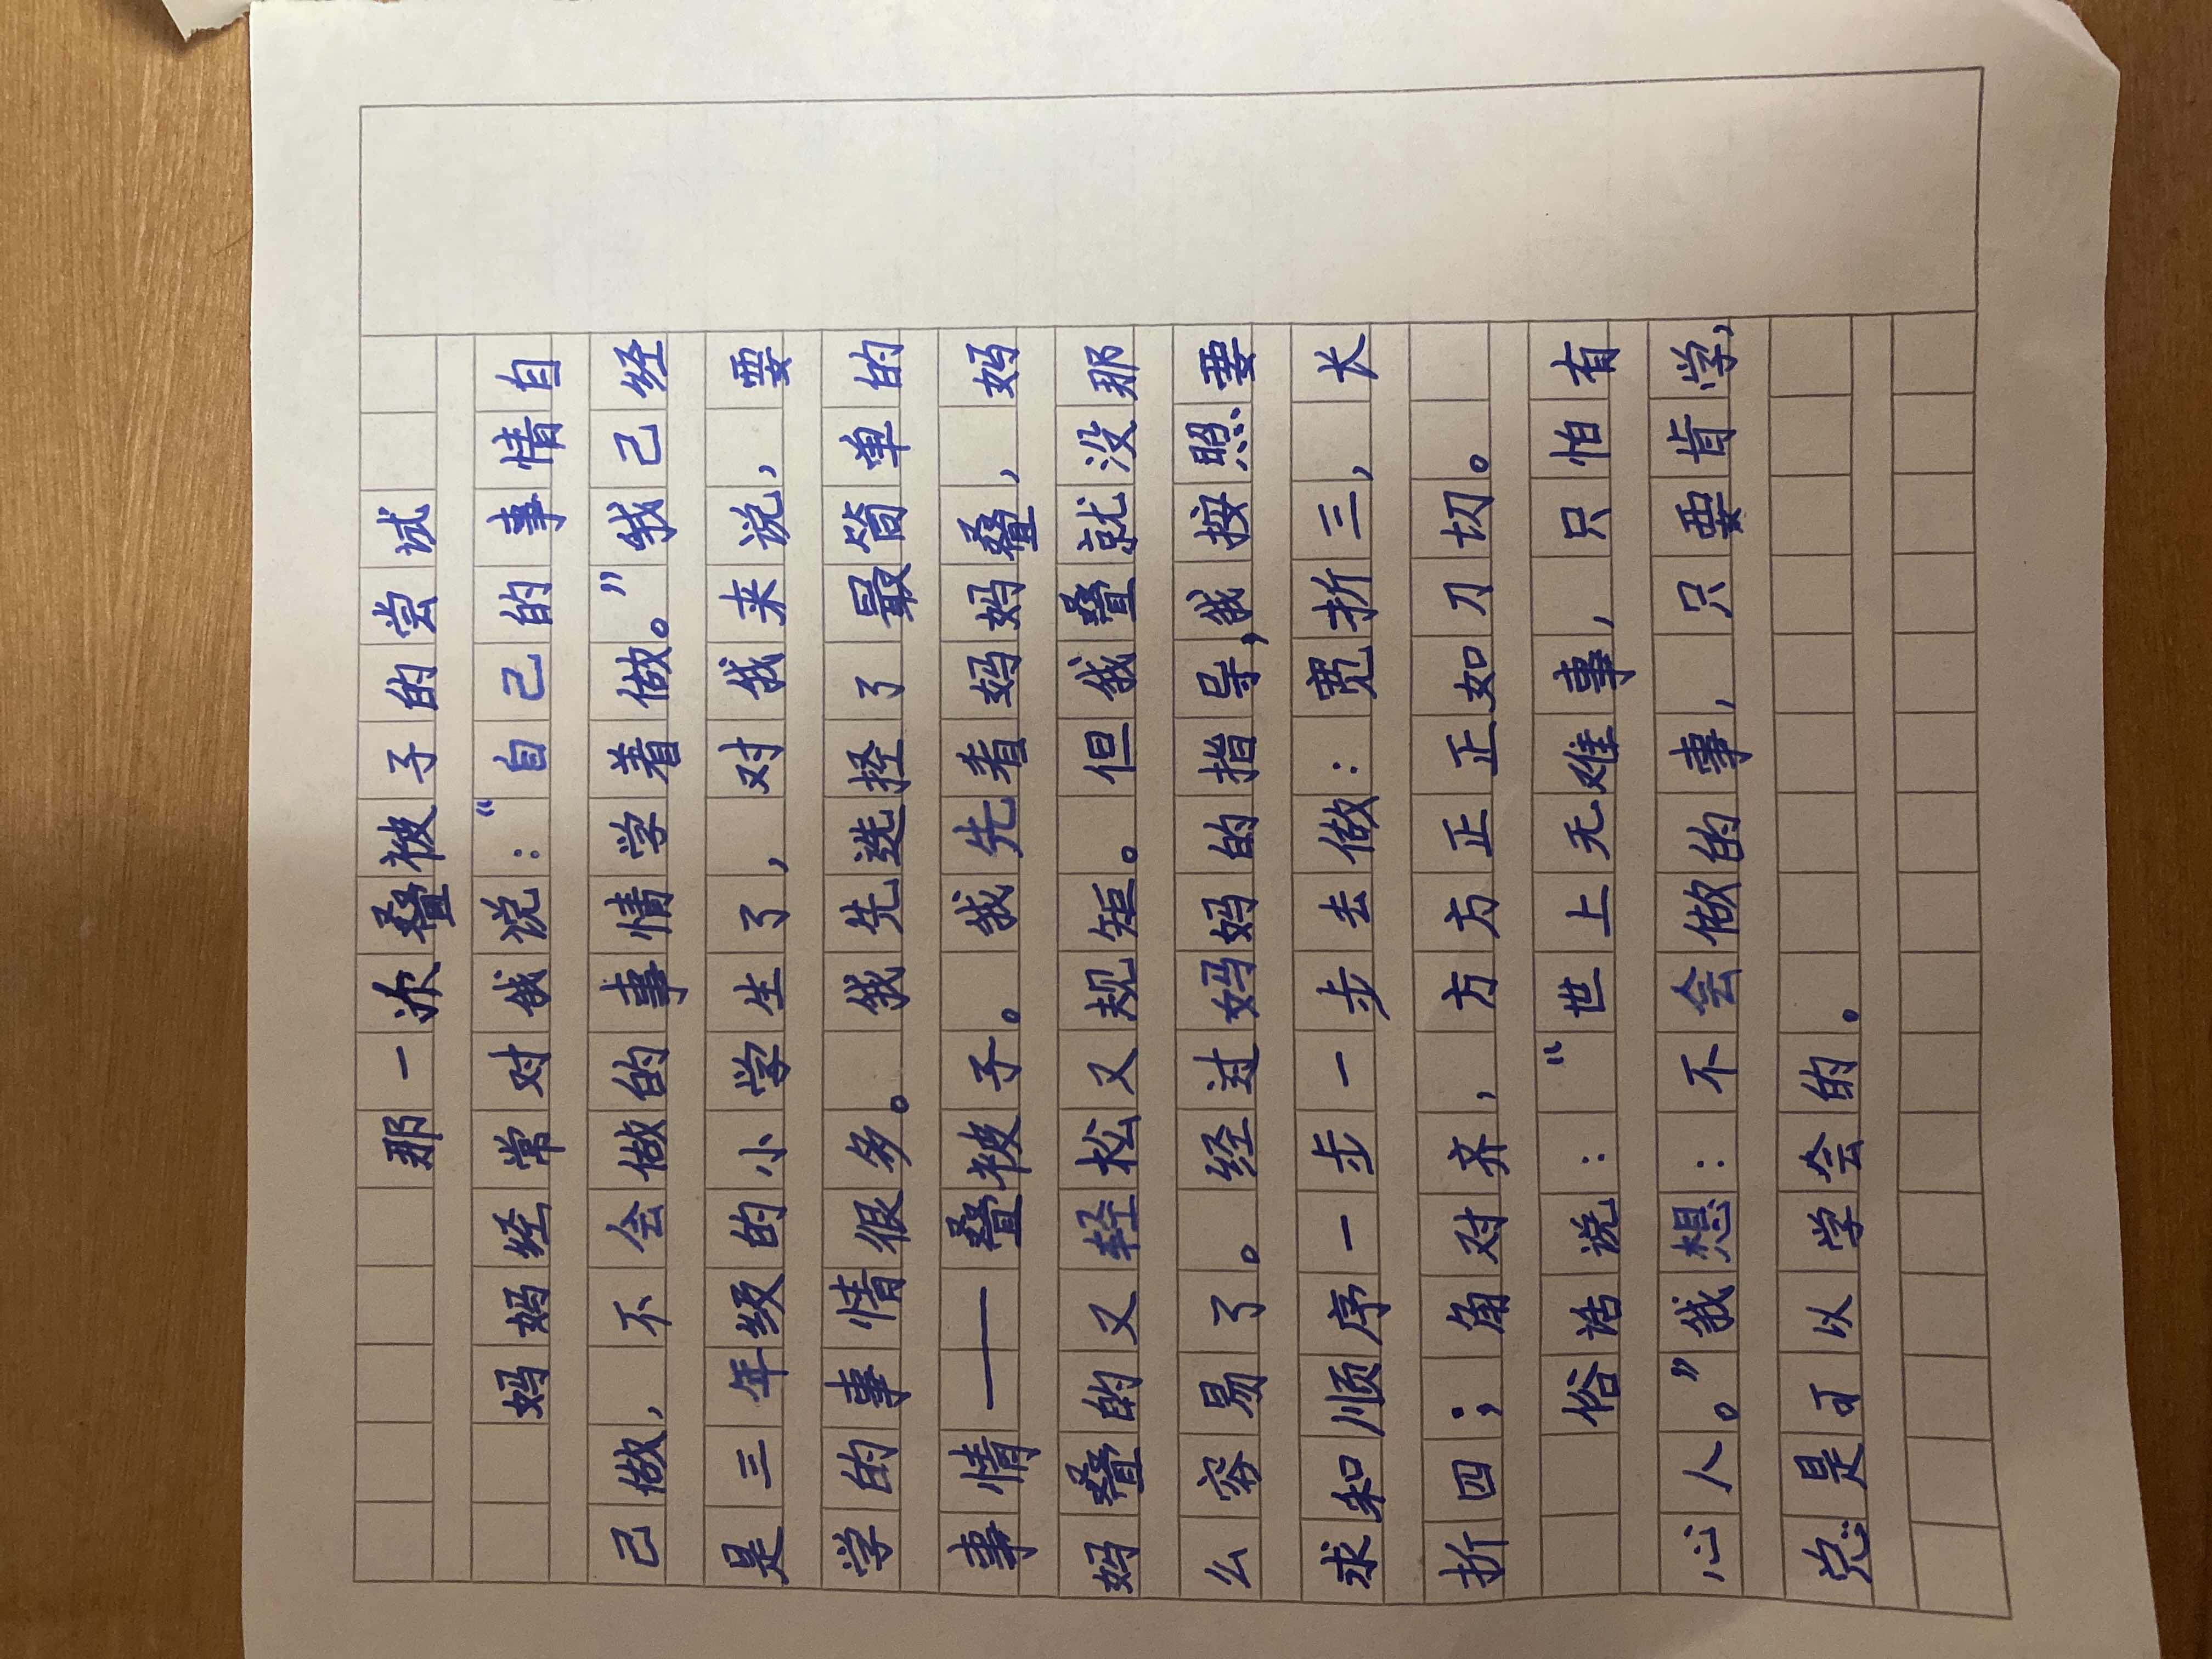 那一次叠被子的尝试
妈妈经常对我说：“自己的事情自
己做，不会做的事情学着做。”我己经
是三年级的小学生了，对我来说，要
学的事情很多。我先选择了最简单的
事情——叠被子。我先看妈妈叠，妈
妈叠的又轻松又规矩。但我叠就没那
么容易了。经过妈妈的指导，我按照要
求和顺序一步一步去做：宽折三，长
折四；角对齐，方方正正如刀切。
俗话说：“世上无难事，只怕有
心人。”我想：不会做的事，只要肯学，
总是可以学会的。